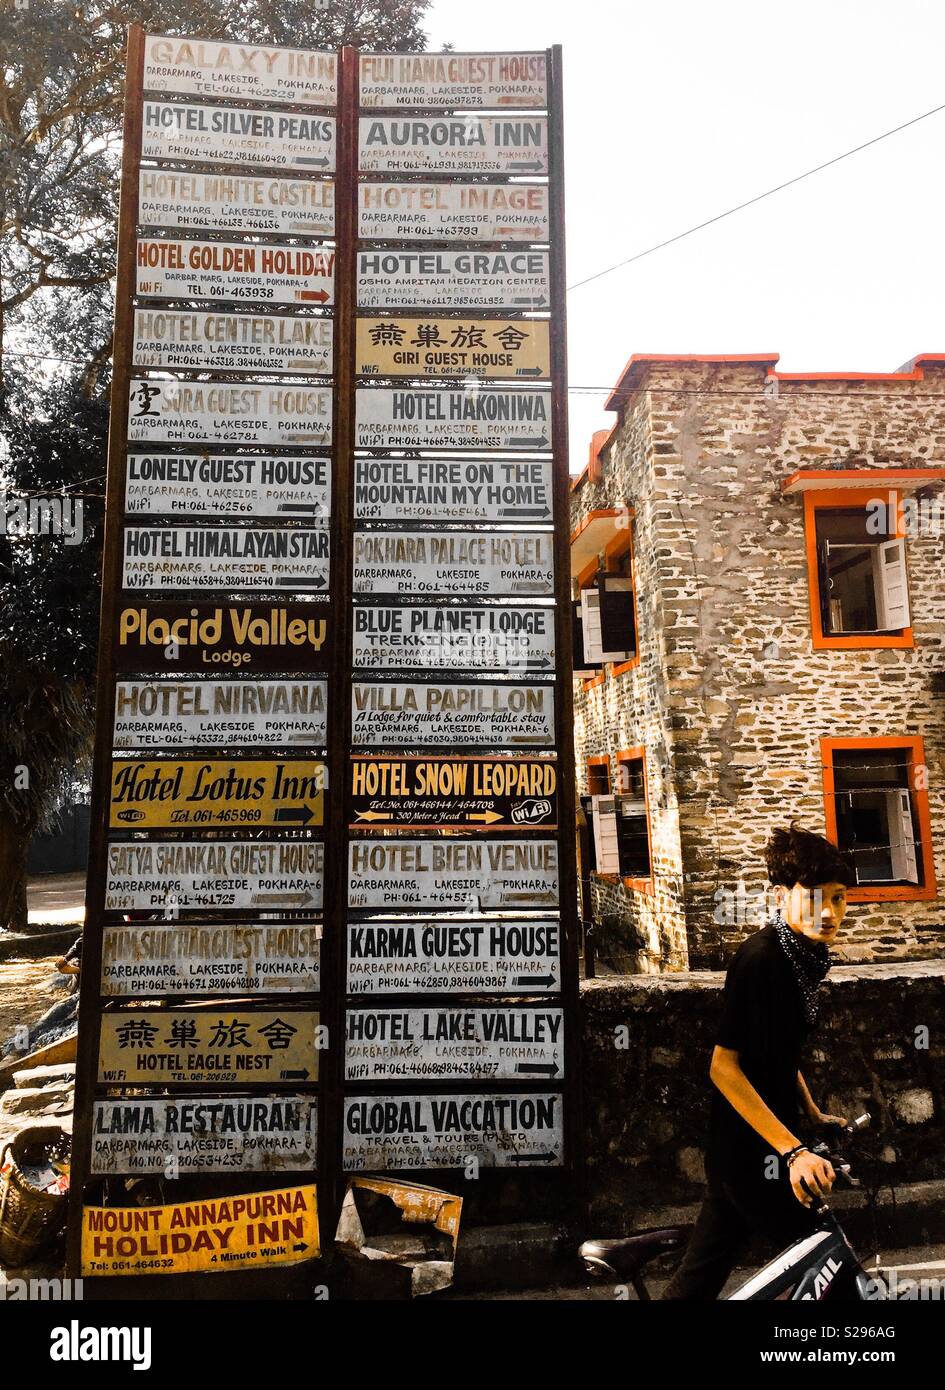 GALAXY INN
DARBARMARG, LAKESIDE, POKHARA-6
WiFi TEL-061-462329
HOTEL SILVER PEAKS
DARBARMARG, LAKESIDE, POKHARA-6
WiFi PH:061-461622,9816160420
HOTEL WHITE CASTLE
DARBARMARG, LAKESIDE, POKHARA-6
WiFi PH:061-466135,466136
HOTEL GOLDEN HOLIDAY
DARBAR MARG, LAKESIDE, POKHARA-6
TEL. 061-463938
HOTEL CENTER LAKE
DARBARMARG, LAKESIDE, POKHARA-6
WiFi PH:061-463318,9846061352
空 SORA GUEST HOUSE
DARBARMARG, LAKESIDE, POKHARA-6
PH:061-462781
LONELY GUEST HOUSE
DARBARMARG, LAKESIDE, POKHARA-6
WiFi PH:061-462566
HOTEL HIMALAYAN STAR
DARBARMARG, LAKESIDE, POKHARA-6
WiFi PH:061-465846,9804116540
Placid Valley
Lodge
HOTEL NIRVANA
DARBARMARG, LAKESIDE POKHARA-6
WiFi TEL:-061-463332,9846104822
Hotel Lotus Inn
WiFi Tel.061-465969
SATYA SHANKAR GUEST HOUSE
DARBARMARG, LAKESIDE, POKHARA-6
WiFi PH.061-461725
HIM SHIKHAR GUEST HOUSE
DARBARMARG, LAKESIDE, POKHARA-6
WiFi PH:061-464671,9806648108
燕巢旅舍
HOTEL EAGLE NEST
WiFi TEL:061-206929
LAMA RESTAURANT
DARBARMARG, LAKESIDE, POKHARA-6
WiFi MO.NO:-9806534233
MOUNT ANNAPURNA
HOLIDAY INN
Tel: 061-464632 4 Minute Walk
FUJI HANA GUEST HOUSE
DARBARMARG, LAKESIDE, POKHARA-6
WiFi MO.NO:9806697878
AURORA INN
DARBARMARG, LAKESIDE POKHARA-6
WiFi PH:061-461991,9817173336
HOTEL IMAGE
DARBARMARG, LAKESIDE, POKHARA-6
061-463799
HOTEL GRACE
OSHO AMRITAM MEDATION CENTRE
DARBARMARG LAKESIDE POKHARA-6
WiFi PH:061-466117,9856031952
燕巢旅舍
GIRI GUEST HOUSE
WiFi TEL:061-464955
HOTEL HAKONIWA
DARBARMARG, LAKESIDE, POKHARA-6
WiFi PH:061-466674,9845044353
HOTEL FIRE ON THE
MOUNTAIN MY HOME
WiFi PH:061-465461
POKHARA PALACE HOTEL
DARBARMARG, LAKESIDE POKHARA-6
WiFi PH:061-464485
BLUE PLANET LODGE
TREKKING (P) LTD
DARBARMARG, LAKESIDE, POKHARA-6
WiFi PH:061-465706,461472
VILLA PAPILLON
A Lodge for quiet & comfortable stay
DARBARMARG, LAKESIDE, POKHARA-6
WiFi PH:061-465030,9804144630
HOTEL SNOW LEOPARD
Tel.No. 061-466144/464708
300 Meter a Head WiFi
HOTEL BIEN VENUE
DARBARMARG, LAKESIDE, POKHARA-6
WiFi PH:061-464531
KARMA GUEST HOUSE
DARBARMARG, LAKESIDE, POKHARA-6
WiFi PH:061-462850,9846049867
HOTEL LAKE VALLEY
DARBARMARG, LAKESIDE, POKHARA-6
WiFi PH:061-46068,9846384177
GLOBAL VACCATION
TRAVEL & TOURS (P) LTD
DARBARMARG, LAKESIDE, POKHARA-6
WiFi PH:-061-
餐館
alamy
Image ID: S296AG
www.alamy.com